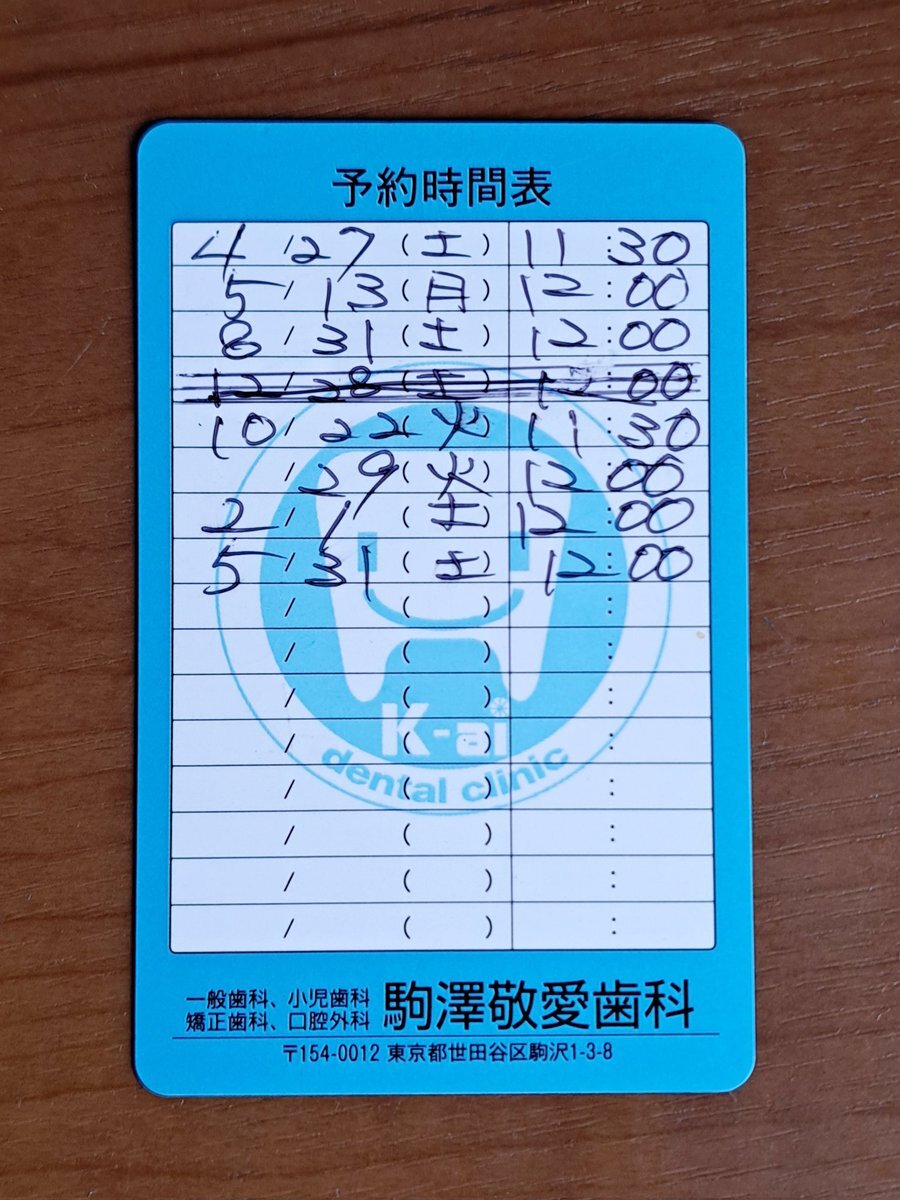 予約時間表
4/27(土) 11:30
5/13(月) 12:00
8/31(土) 12:00
12/28(土) 12:00
10/22(火) 11:30
/29(火) 12:00
2/1(土) 12:00
5/31(土) 12:00
/ ( ) :
/ ( ) :
/ ( ) :
K-ai
/ ( ) :
dental clinic
/ ( ) :
/ ( ) :
/ ( ) :
/ ( ) :
一般歯科、小児歯科
矯正歯科、口腔外科
駒澤敬愛歯科
〒154-0012 東京都世田谷区駒沢1-3-8